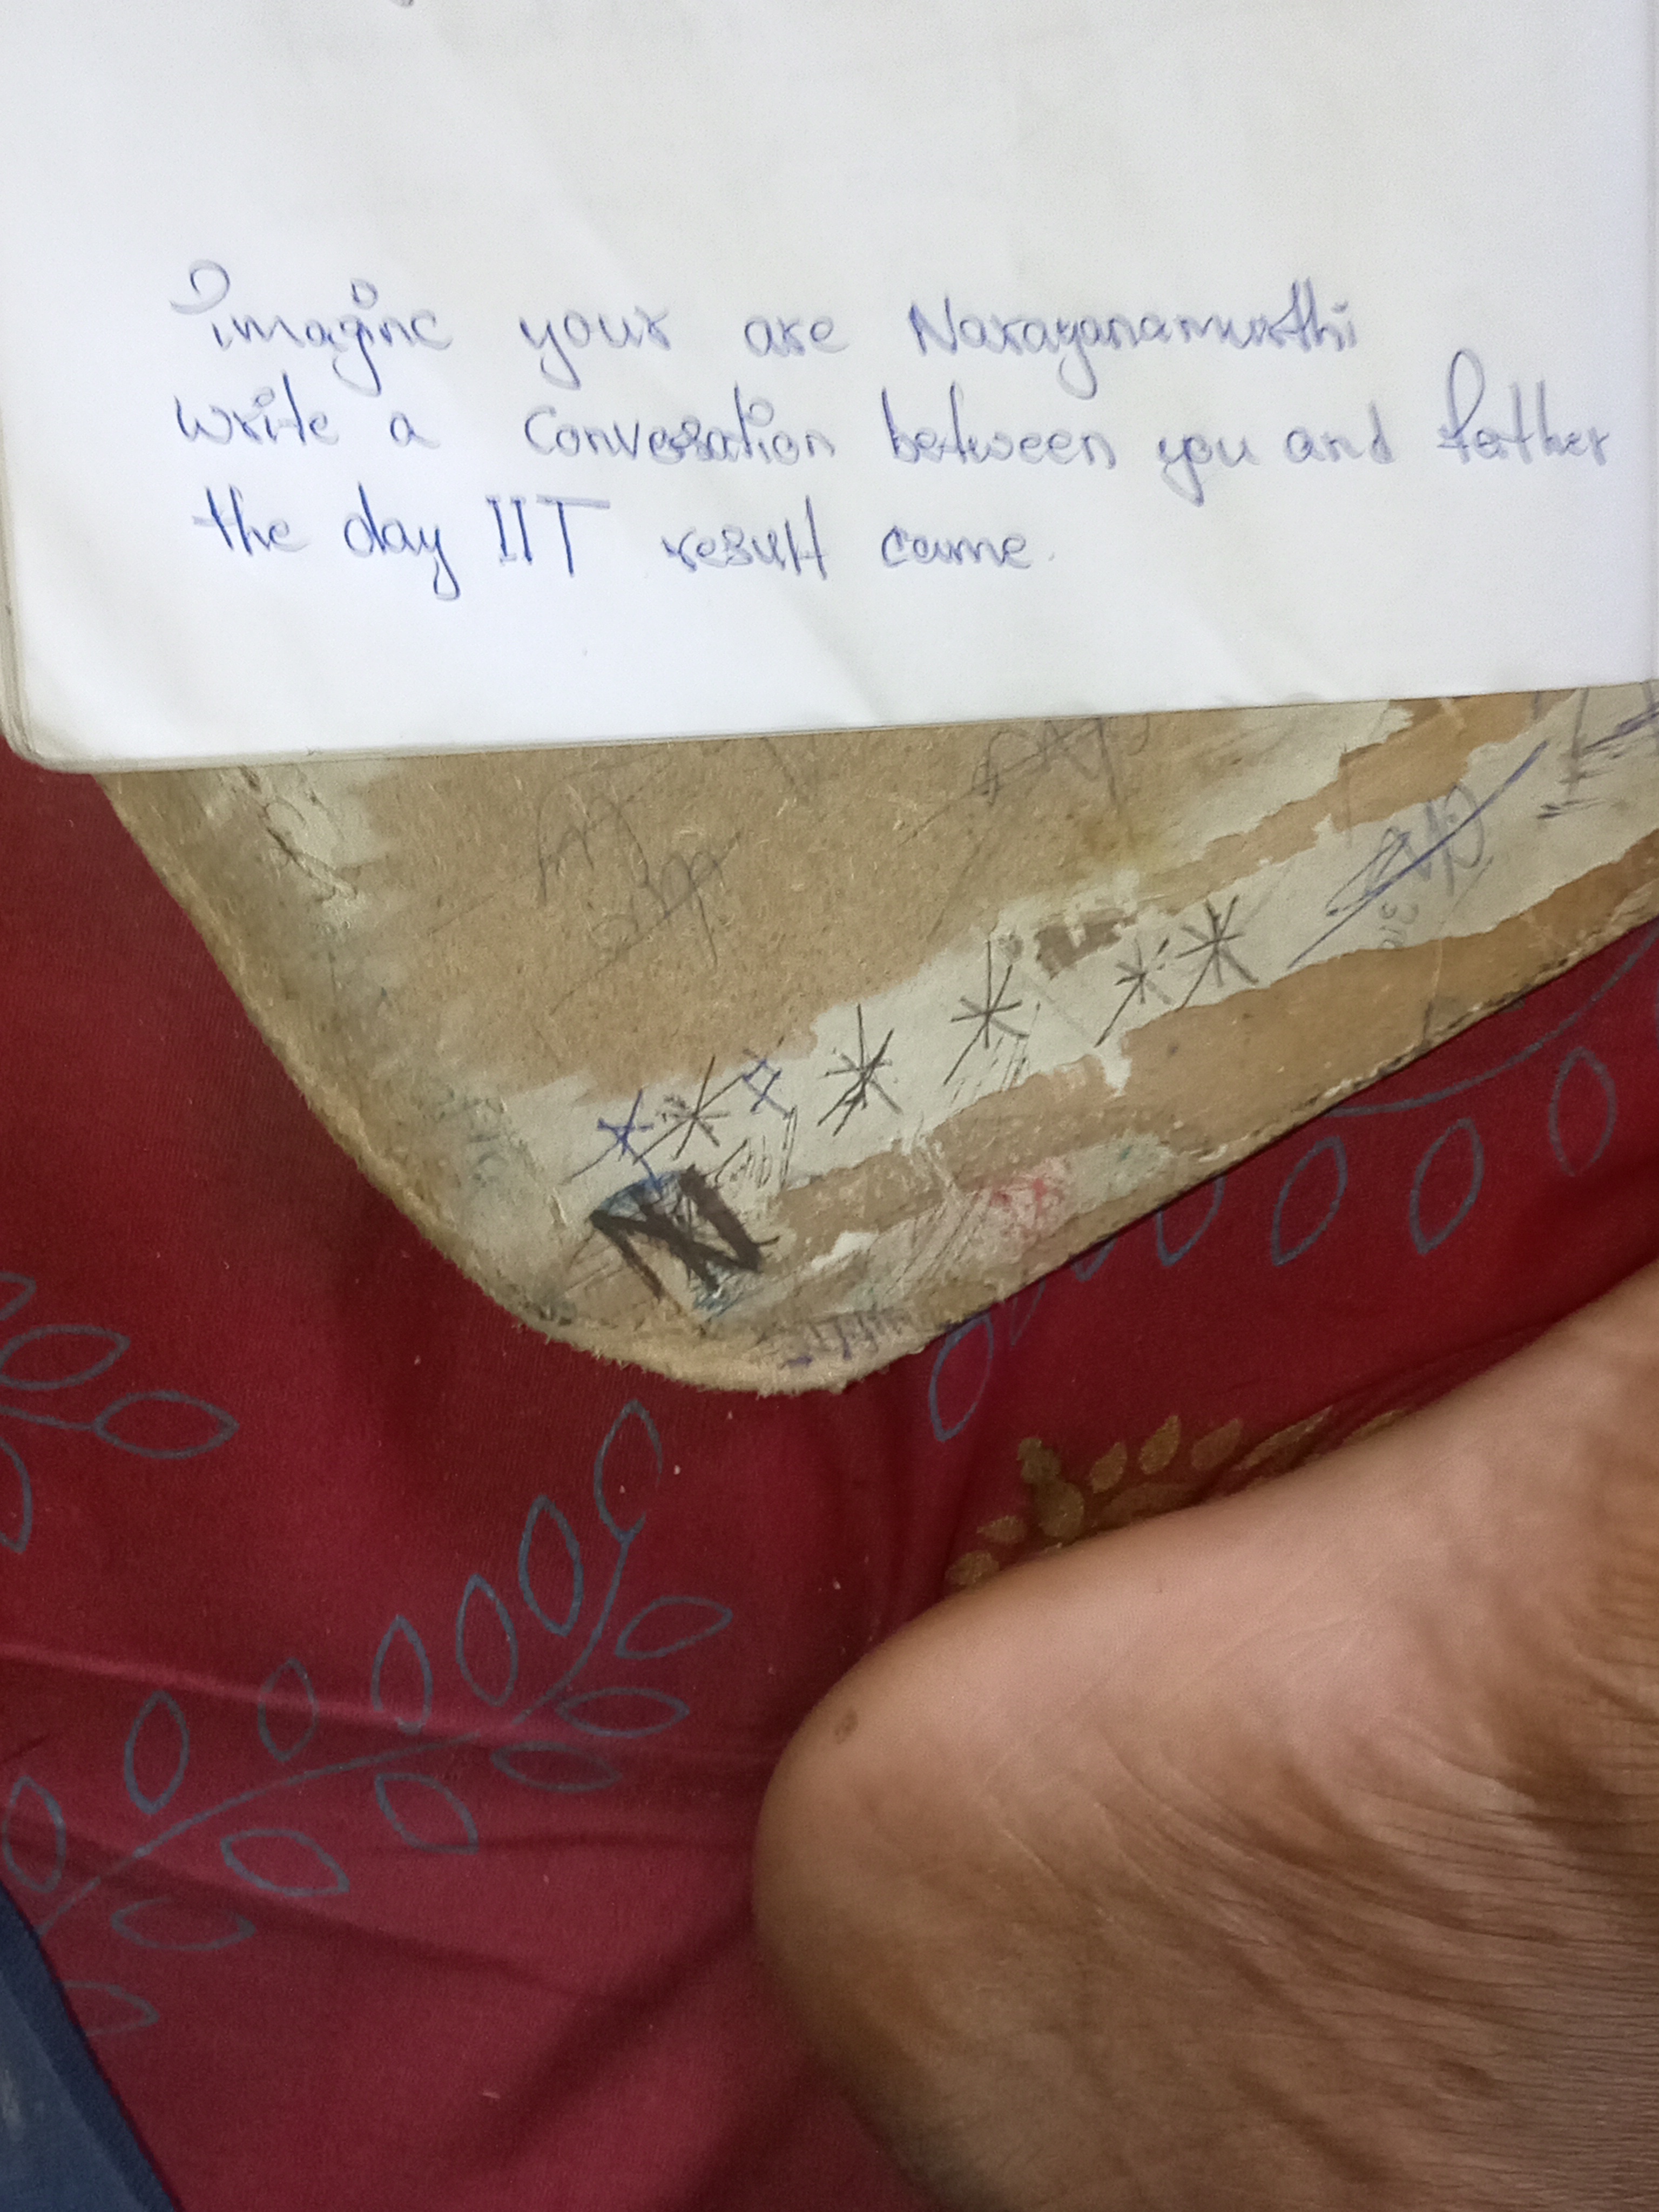 Imagine your are Narayanamurthi
write a conversation between you and father
the day IIT result came.
N